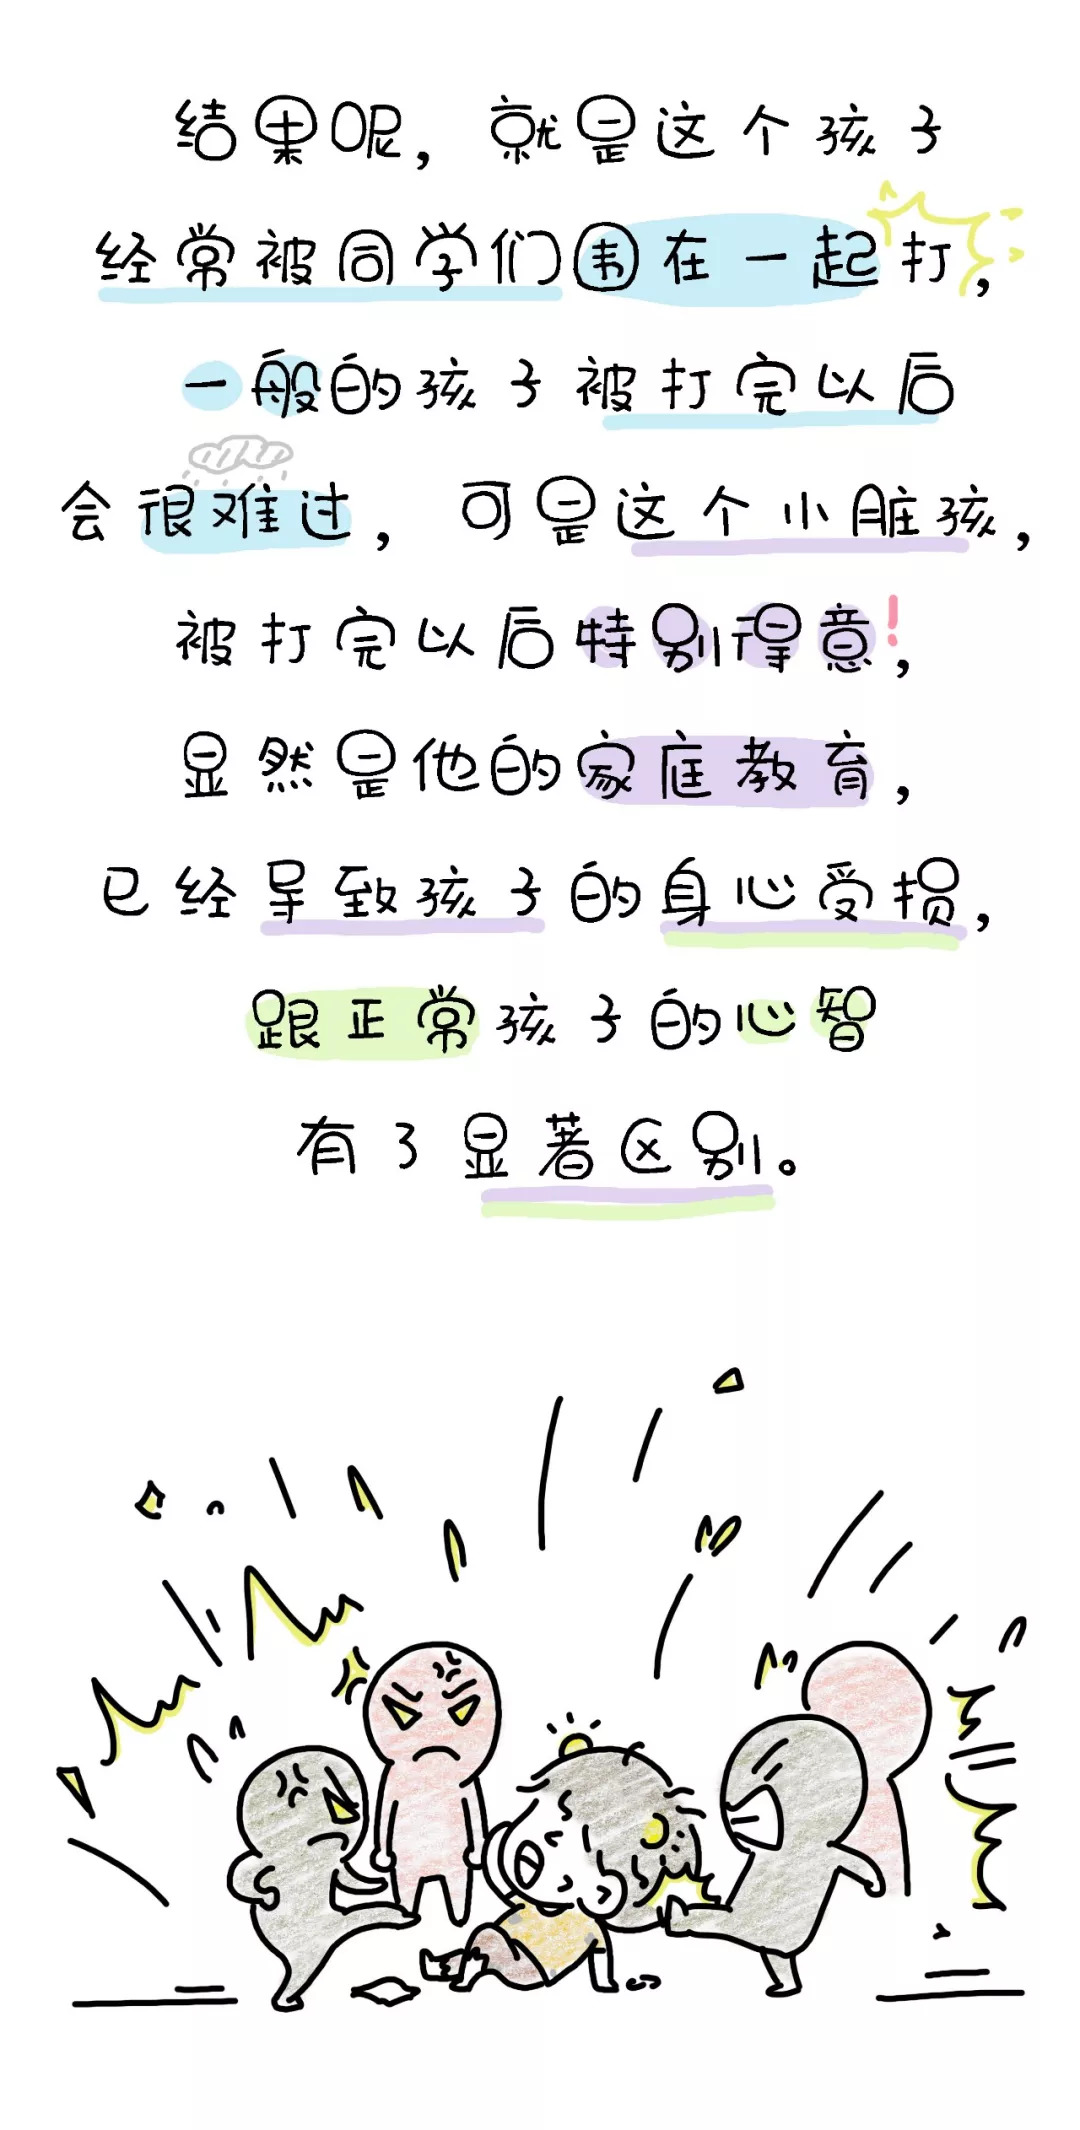 结果呢，就是这个孩子
经常被同学们围在一起打，
一般的孩子被打完以后
会很难过，可是这个小脏孩，
被打完以后特别得意！，
显然是他的家庭教育，
已经导致孩子的身心受损，
跟正常孩子的心智
有了显著区别。